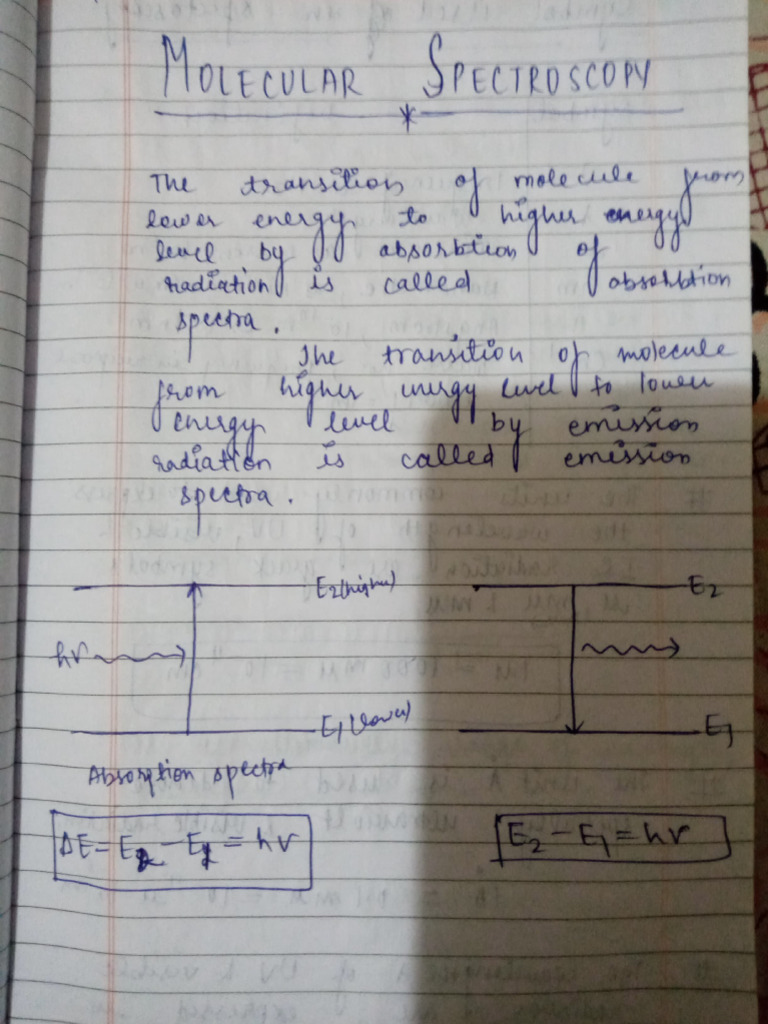 MOLECULAR SPECTROSCOPY
The transition of molecule from
lower energy to higher energy
level by absorbtion of
radiation is called absorbtion
spectra.
The transition of molecule
from higher energy level to lower
energy level by emission
radiation is called emission
spectra.
E2 (higher) E2
hν
E1 (lower) E1
Absorption spectra
ΔE = E2 - E1 = hν
E2 - E1 = hν